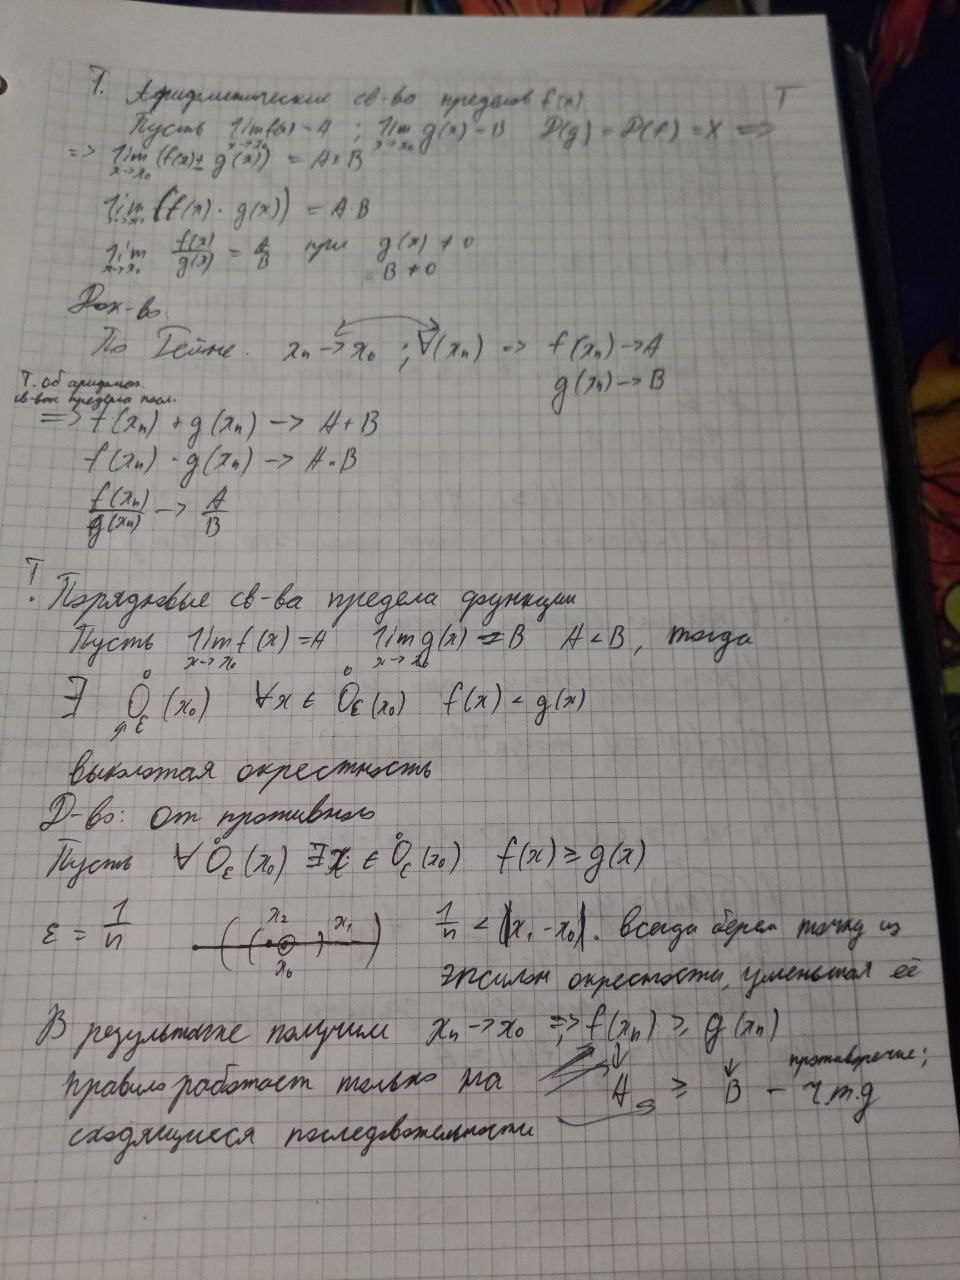 Т. Арифметические св-ва пределов f(x) Т
Пусть lim f(x) = A ; lim g(x) = B D(g) = D(f) = X =>
x→x₀ x→x₀
=> lim (f(x) ± g(x)) = A ± B
x→x₀
lim (f(x) · g(x)) = A·B
x→x₀
lim f(x)/g(x) = A/B при g(x) ≠ 0
x→x₀ B ≠ 0
Док-во.
По Гейне. xₙ → x₀ ; ∀(xₙ) => f(xₙ) → A
g(xₙ) → B
Т. Об арифмет.
св-вах предела посл.
=> f(xₙ) + g(xₙ) → A + B
f(xₙ) · g(xₙ) → A·B
f(xₙ)/g(xₙ) → A/B
Т. Порядковые св-ва предела функции
Пусть lim f(x) = A lim g(x) = B A < B, тогда
x→x₀ x→x₀
∃ O̊_ε(x₀) ∀x ∈ O̊_ε(x₀) f(x) < g(x)
выколотая окрестность
Д-во: От противного
Пусть ∀ O̊_ε(x₀) ∃x ∈ O̊_ε(x₀) f(x) ≥ g(x)
ε = 1/n x₂ x₁ x₀ 1/n < |x₁ - x₀|. Всегда берем точку из
эпсилон окрестности, уменьшая её
В результате получим xₙ → x₀ => f(xₙ) ≥ g(xₙ)
↓ ↓ противоречие;
правило работает только на A ≥ B - ч.т.д
сходящиеся последовательности